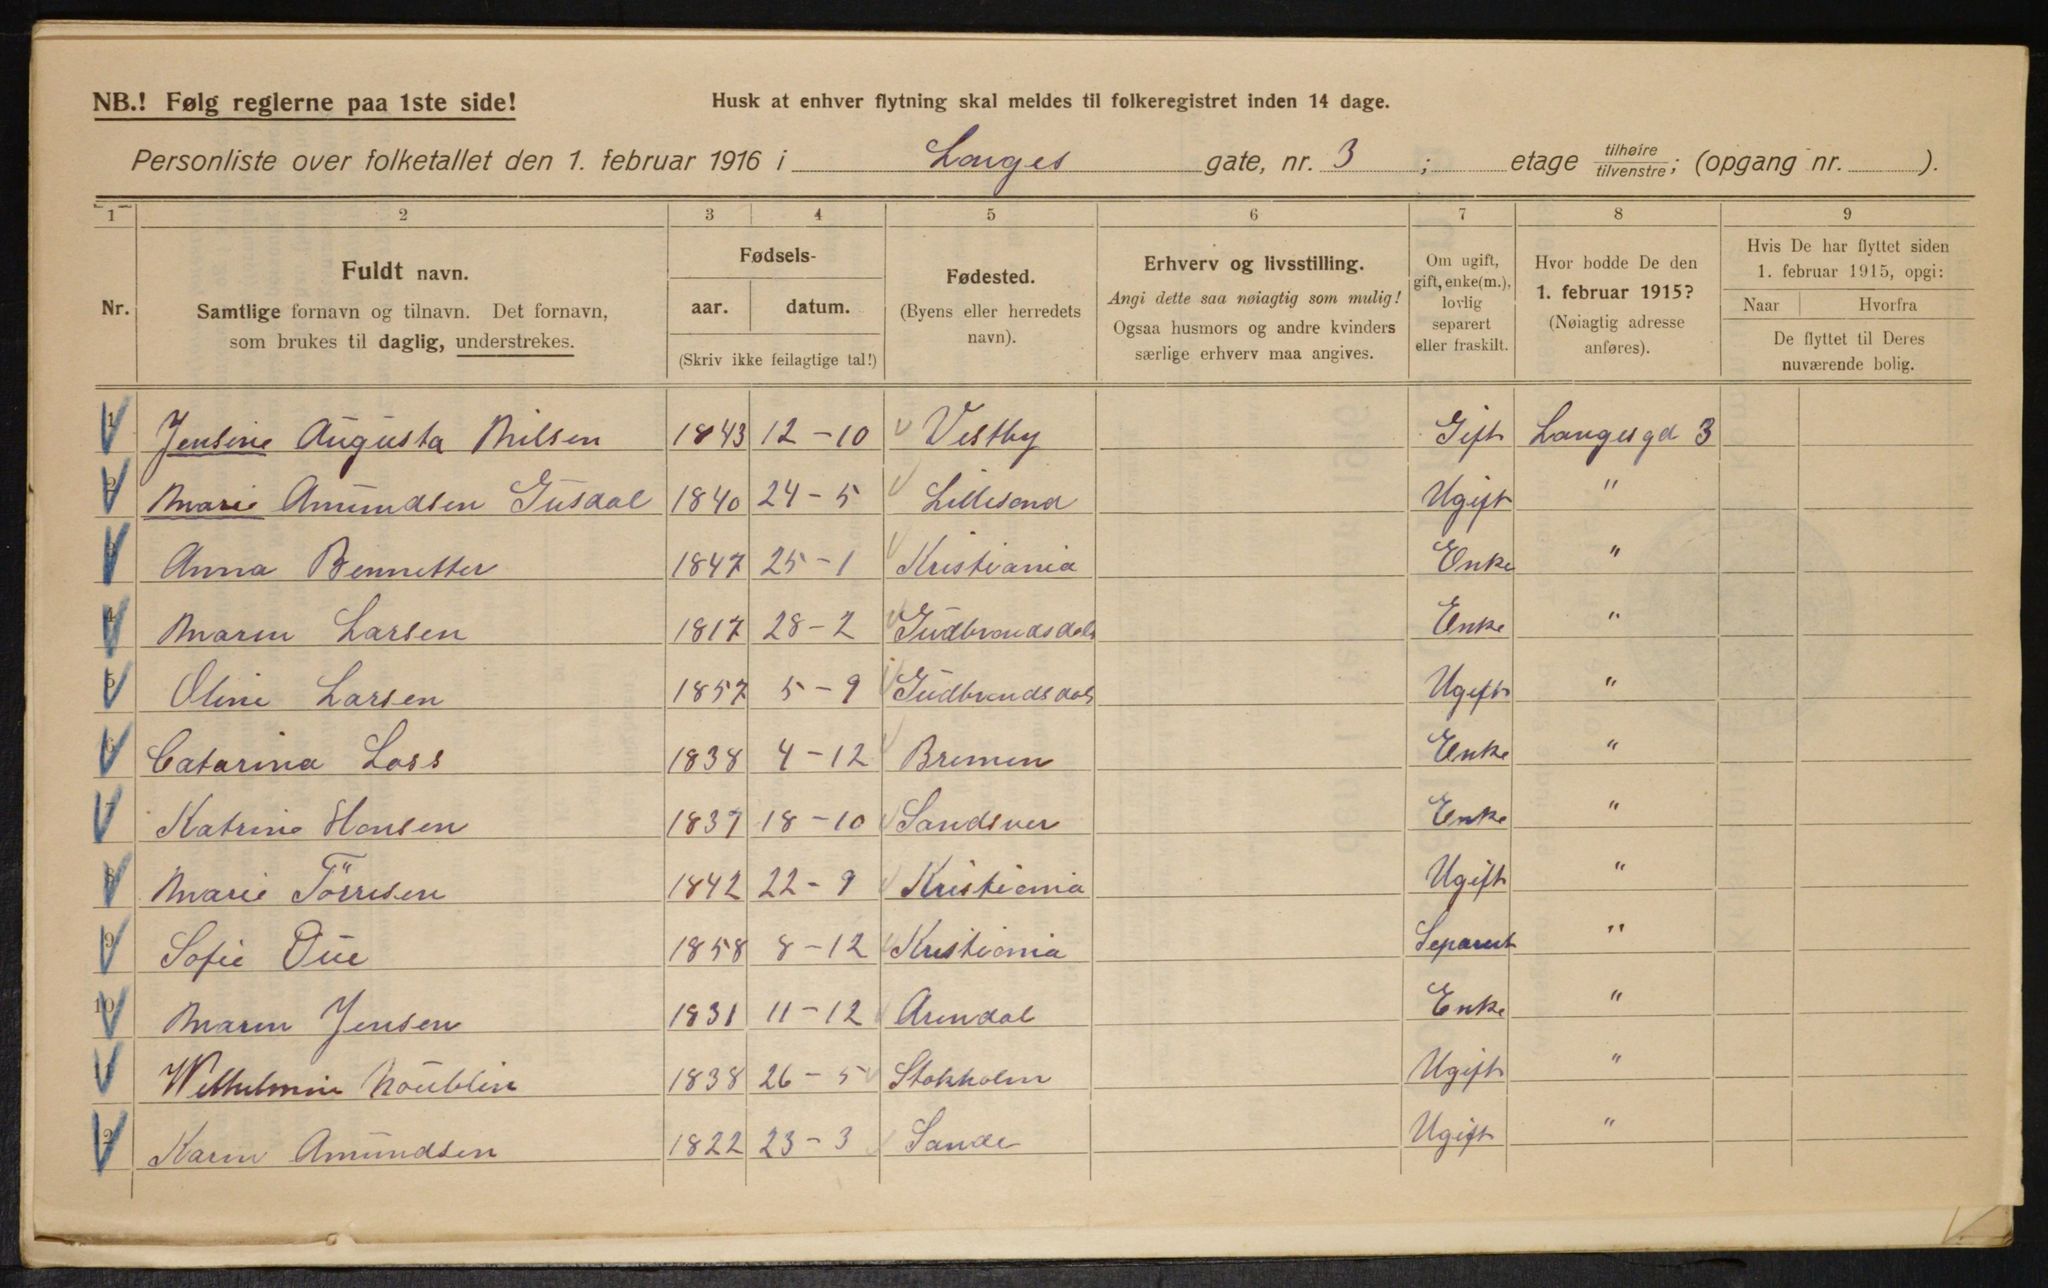 NB.! Følg reglerne paa 1ste side!
Husk at enhver flytning skal meldes til folkeregistret inden 14 dage.
Personliste over folketallet den 1. februar 1916 i Langes gate, nr. 3 ; etage tilhøire tilvenstre; (opgang nr. ).
1 2 3 4 5 6 7 8 9
Nr.
Fuldt navn.
Samtlige fornavn og tilnavn. Det fornavn,
som brukes til daglig, understrekes.
Fødsels-
aar. datum.
(Skriv ikke feilagtige tal!)
Fødested.
(Byens eller herredets
navn).
Erhverv og livsstilling.
Angi dette saa nøiagtig som mulig!
Ogsaa husmors og andre kvinders
særlige erhverv maa angives.
Om ugift,
gift, enke(m.),
lovlig
separert
eller fraskilt.
Hvor bodde De den
1. februar 1915?
(Nøiagtig adresse
anføres).
Hvis De har flyttet siden
1. februar 1915, opgi:
Naar Hvorfra
De flyttet til Deres
nuværende bolig.
1 Jensine Augusta Nilsen 1843 12-10 Vestby Gift Langesgd 3
2 Marie Amundsen Gusdal 1840 24-5 Lillesand Ugift "
3 Anna Bennetter 1847 25-1 Kristiania Enke "
4 Maren Larsen 1817 28-2 Gudbrandsdals Enke "
5 Oline Larsen 1857 5-9 Gudbrandsdals Ugift "
6 Catarina Loss 1838 4-12 Bremen Enke "
7 Katrine Hansen 1837 18-10 Sandsver Enke "
8 Marie Törrisen 1842 22-9 Kristiania Ugift "
9 Sofie Due 1858 8-12 Kristiania Separert "
10 Maren Jensen 1831 11-12 Arendal Enke "
Wilhelmine 1838 26-5 Stokholm Ugift "
2 Karen Amundsen 1822 23-3 Sande Ugift "